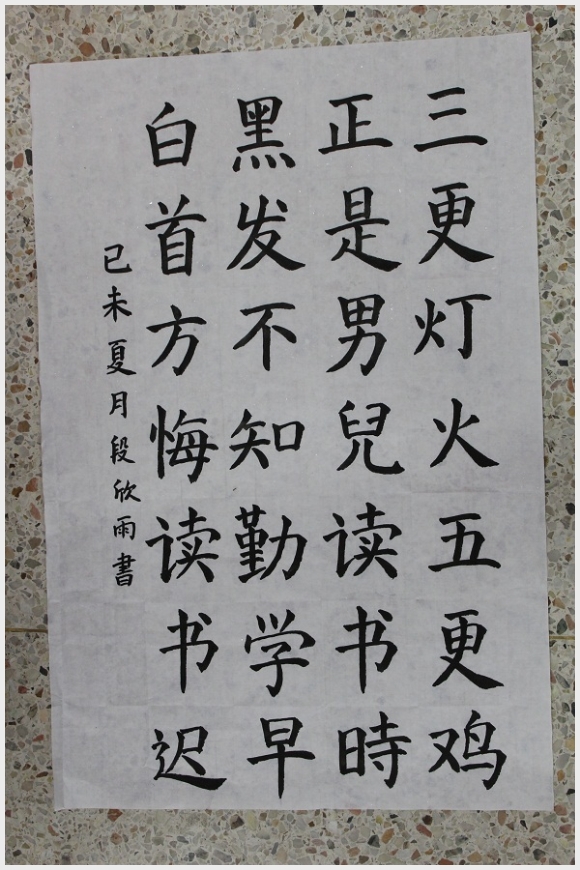 三更灯火五更鸡
正是男兒读书時
黑发不知勤学早
白首方悔读书迟
已未夏月段欣雨書